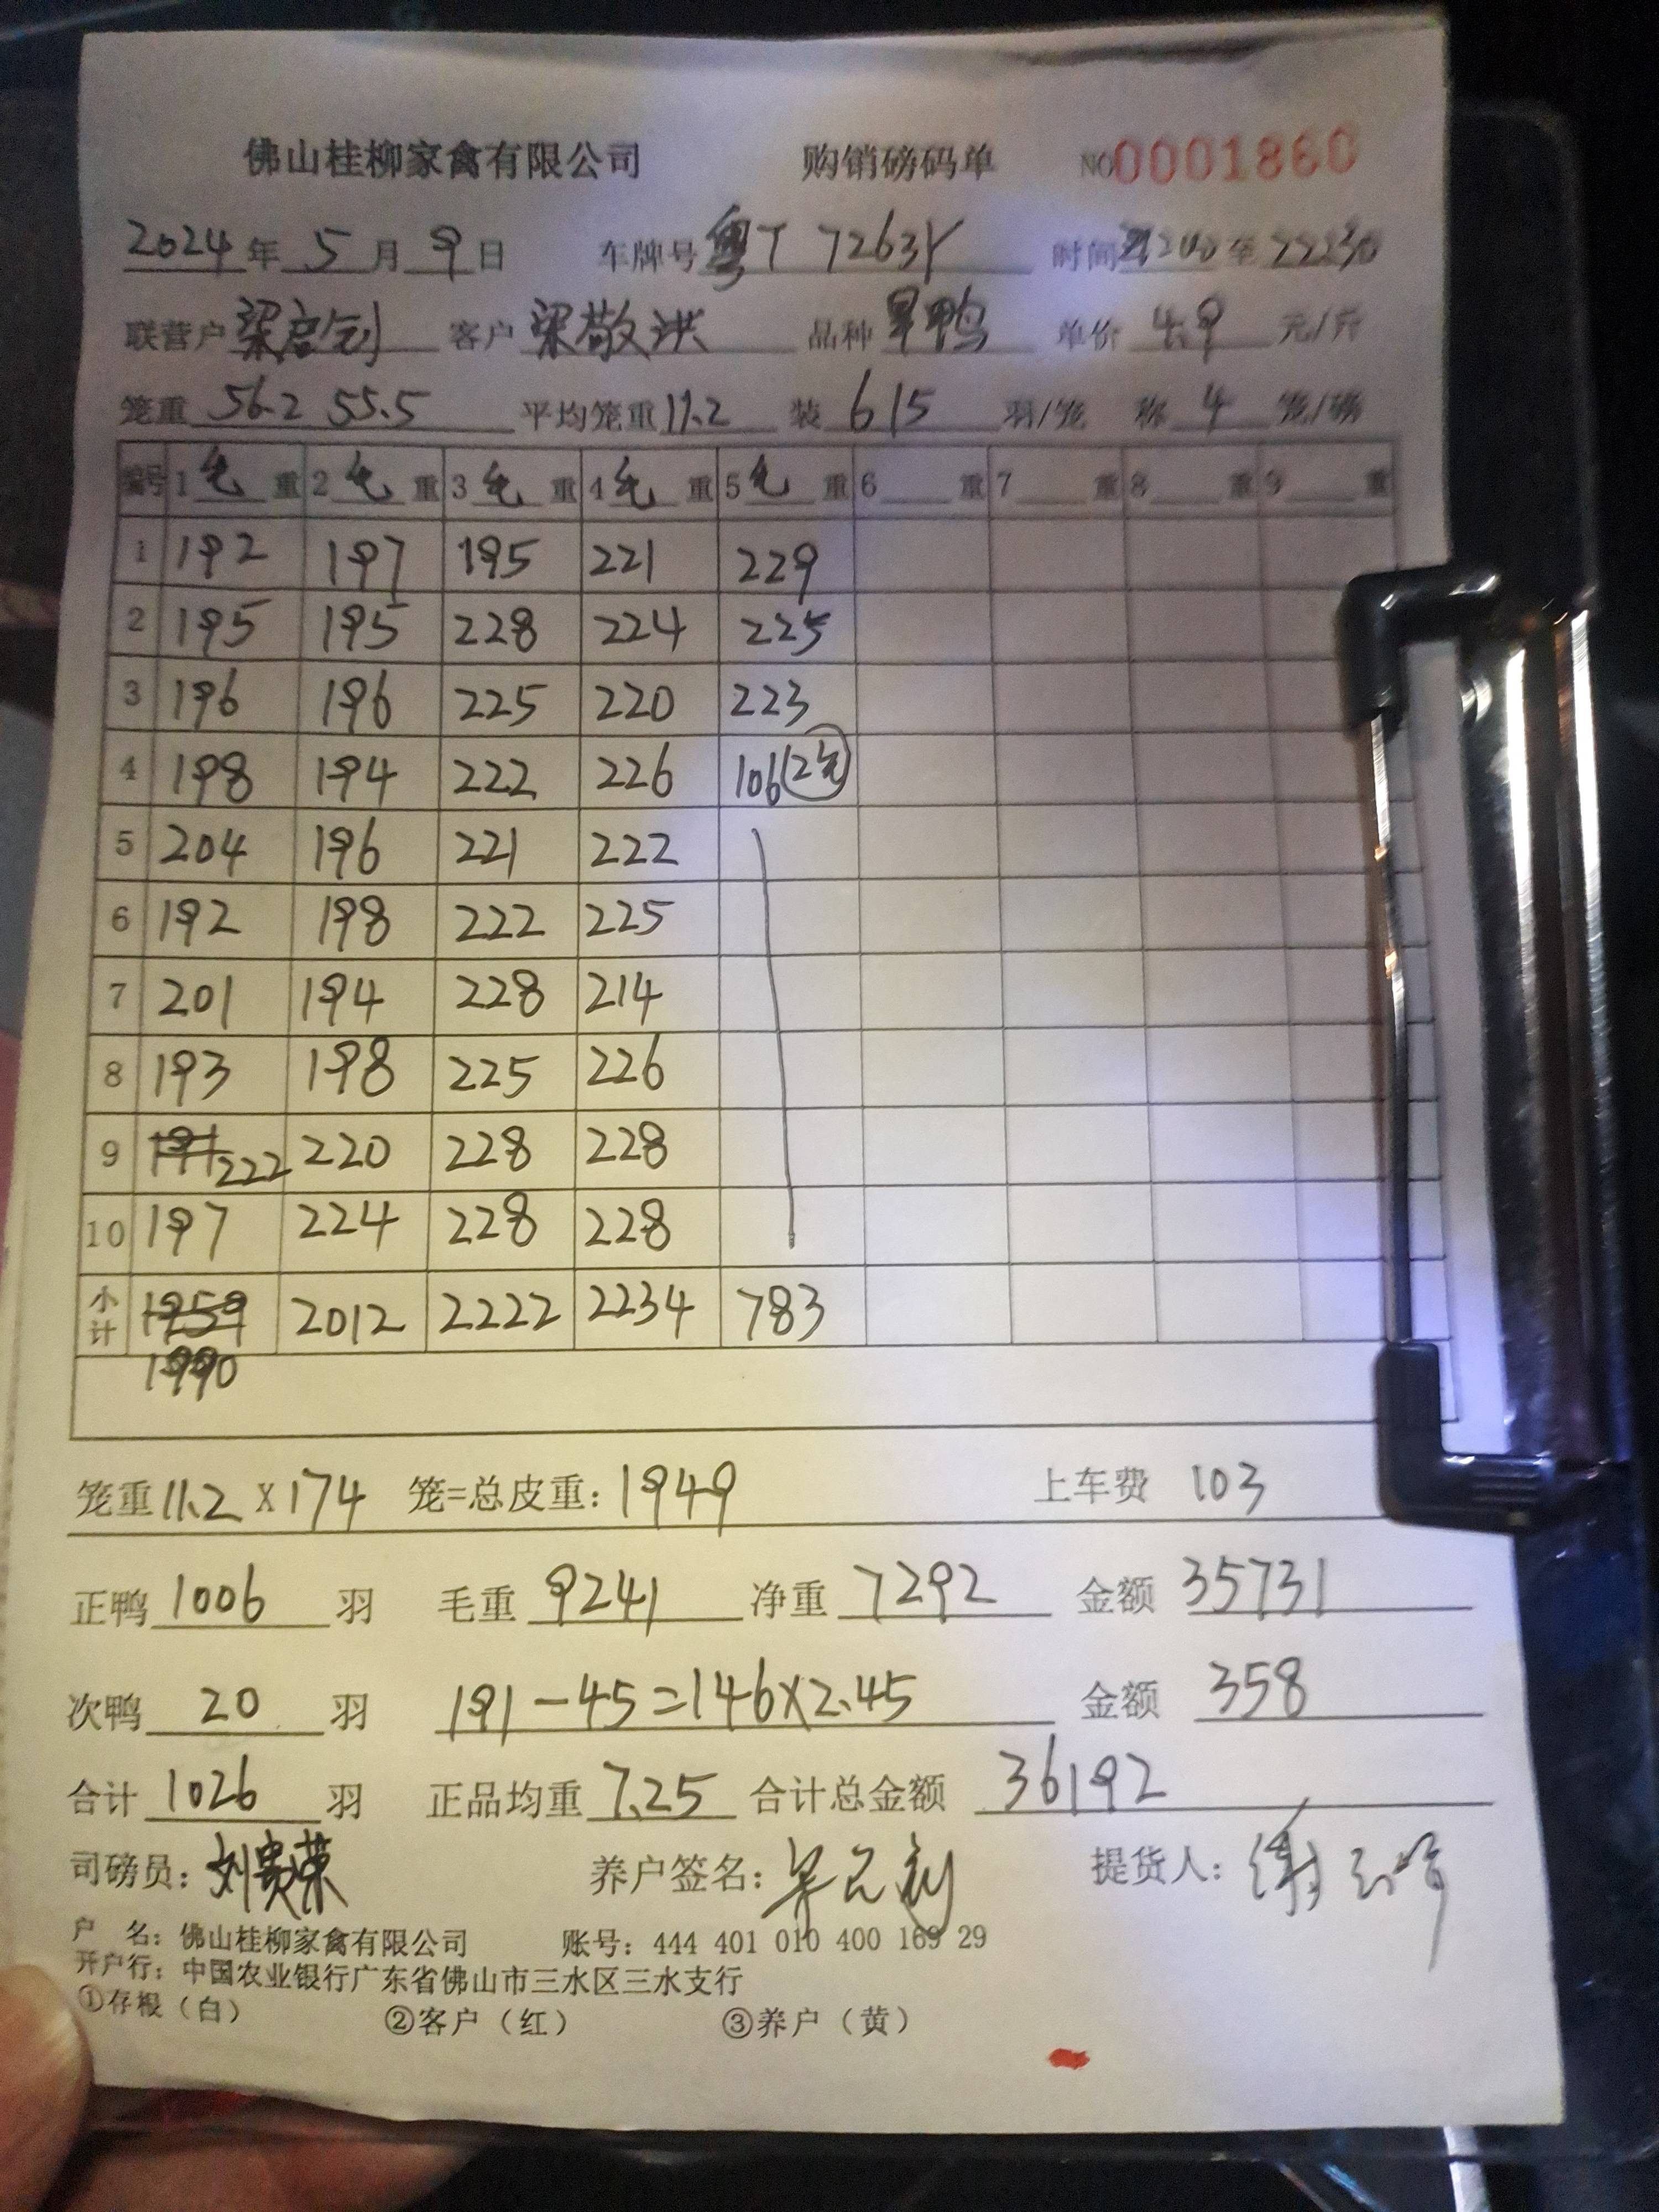 佛山桂柳家禽有限公司 购销磅码单 NO0001860
2024年 5 月 9 日 车牌号 粤T 7263Y 时间 至
联营户 客户 梁敬洪 品种 旱鸭 单价 4.9 元/斤
笼重 56.2 55.5 平均笼重 11.2 装 6 15 羽/笼 称 4 笼/磅
编号 1 毛 重 2 毛 重 3 毛 重 4 毛 重 5 毛 重 6 重 7 重 8 重 9 重
1 192 197 195 221 229
2 195 195 228 224 225
3 196 196 225 220 223
4 198 194 222 226 106
5 204 196 221 222
6 192 198 222 225
7 201 194 228 214
8 193 198 225 226
9 191 222 220 228 228
10 197 224 228 228
小计 1959 2012 2222 2234 783
1990
笼重 11.2 X 174 笼=总皮重: 1949 上车费 103
正鸭 1006 羽 毛重 9241 净重 7292 金额 35731
次鸭 20 羽 191-45=146×2.45 金额 358
合计 1026 羽 正品均重 7.25 合计总金额 36192
司磅员: 刘贵荣 养户签名: 提货人:
户 名: 佛山桂柳家禽有限公司 账号: 444 401 010 400 169 29
开户行: 中国农业银行广东省佛山市三水区三水支行
①存根（白） ②客户（红） ③养户（黄）